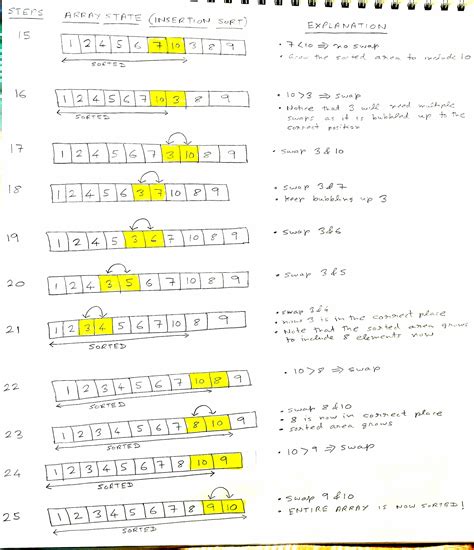 STEPS ARRAY STATE (INSERTION SORT) EXPLANATION
15 1 2 4 5 6 7 10 3 8 9 • 7<10 ⇒ no swap
SORTED • Grow the sorted area to include 10
16 1 2 4 5 6 7 10 3 8 9 • 10>3 ⇒ swap
SORTED • Notice that 3 will need multiple
swaps as it is bubbled up to the
correct position
17 1 2 4 5 6 7 3 10 8 9 • swap 3 & 10
18 1 2 4 5 6 3 7 10 8 9 • swap 3 & 7
• keep bubbling up 3
19 1 2 4 5 3 6 7 10 8 9 • swap 3 & 6
20 1 2 4 3 5 6 7 10 8 9 • swap 3 & 5
21 1 2 3 4 5 6 7 10 8 9 • swap 3 & 4
SORTED • now 3 is in the correct place
• Note that the sorted area grows
to include 8 elements now
22 1 2 3 4 5 6 7 10 8 9 • 10>8 ⇒ swap
SORTED
23 1 2 3 4 5 6 7 8 10 9 • swap 8 & 10
SORTED • 8 is now in correct place
• sorted area grows
24 1 2 3 4 5 6 7 8 10 9 • 10>9 ⇒ swap
SORTED
25 1 2 3 4 5 6 7 8 9 10 • swap 9 & 10
SORTED • ENTIRE ARRAY IS NOW SORTED!